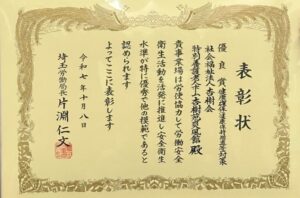 表彰状
優良賞
社会福祉法人杏樹会
特別養護老人ホーム杏樹苑爽風館殿
貴事業場は労使協力して労働安全
衛生活動を活発に推進し安全衛生
水準が特に優秀で他の模範であると
認められます
よってここに表彰します
令和七年十月八日
埼玉労働局長 片淵仁文